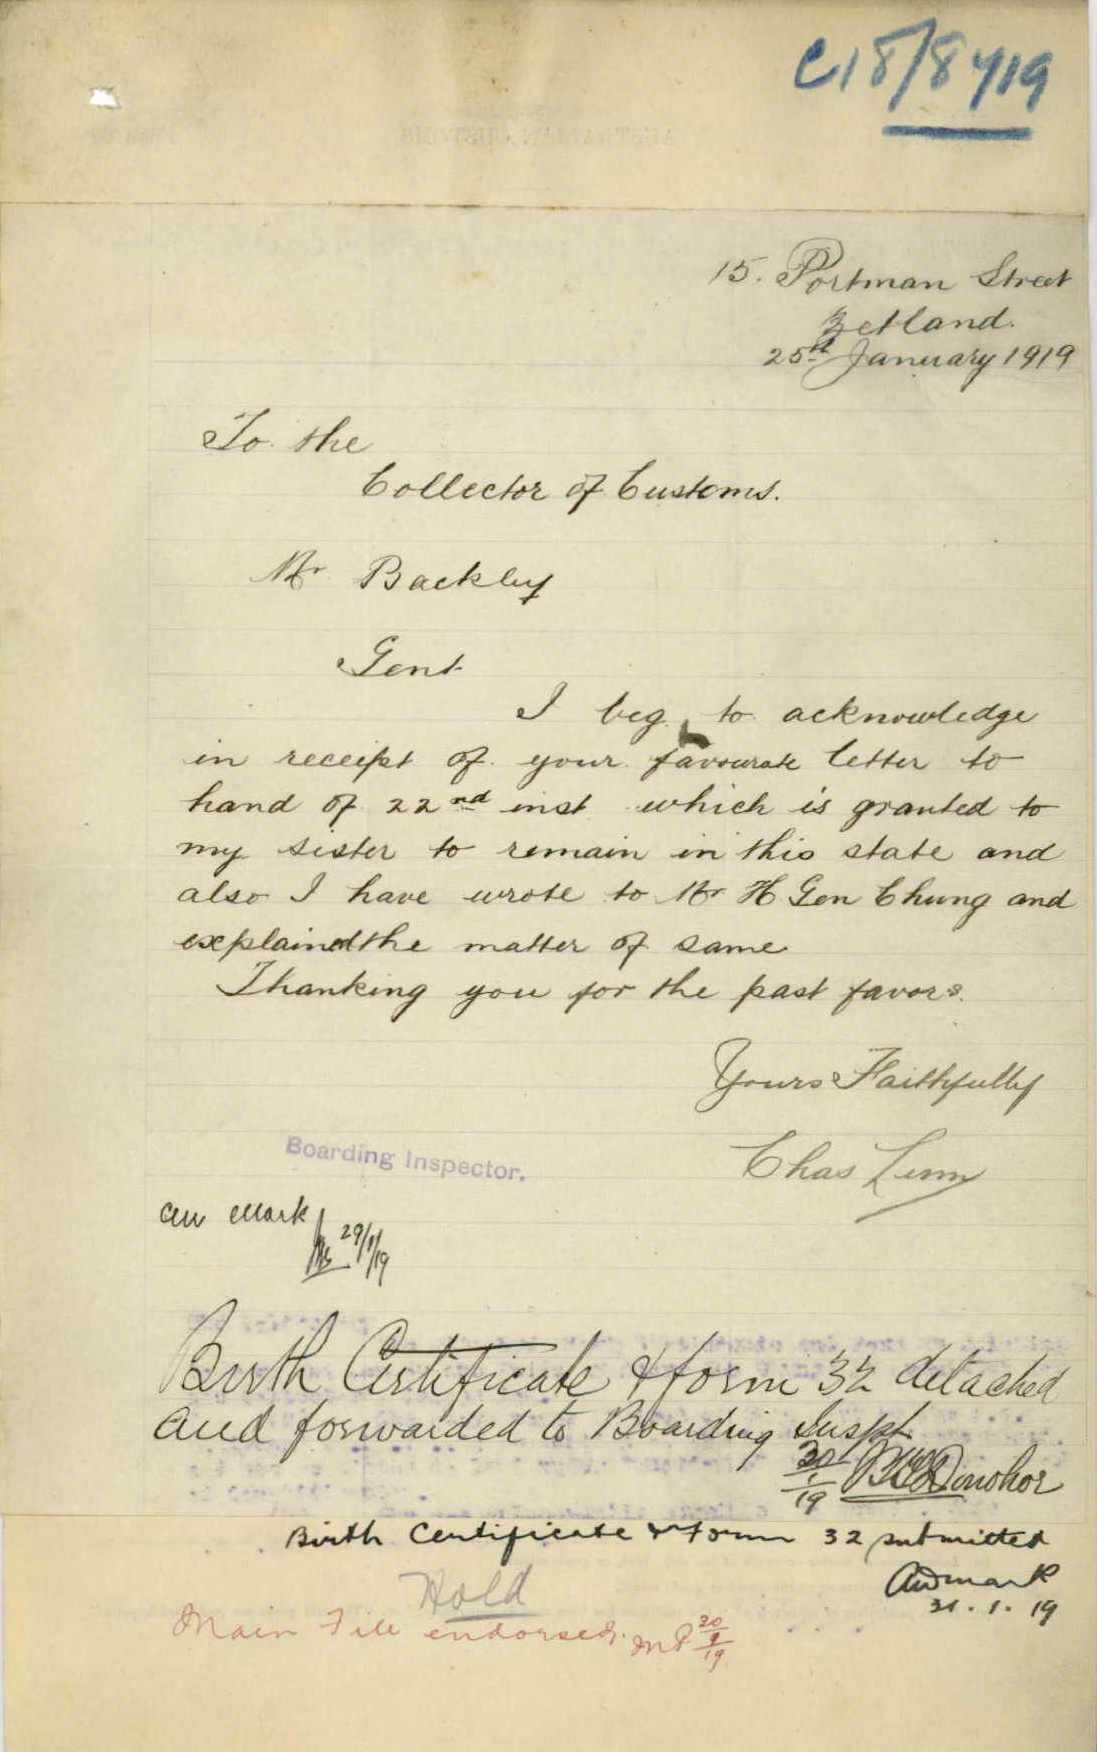 C18/8719
15. Portman Street
Zetland.
25th January 1919
To the
Collector of Customs.
Mr Backley
Gent
I beg to acknowledge
in receipt of your favourate letter to
hand of 22nd inst which is granted to
my sister to remain in this state and
also I have wrote to Mr H Gen Chung and
explained the matter of same
Thanking you for the past favors.
Yours Faithfully
Chas Linn
Boarding Inspector.
Mark
29/1/19
Birth Certificate & form 32 detached
and forwarded to Boarding Inspt.
30/1/19 Donohoe
Birth Certificate & Form 32 submitted
Mark
31.1.19
Hold
Main File endorsed.